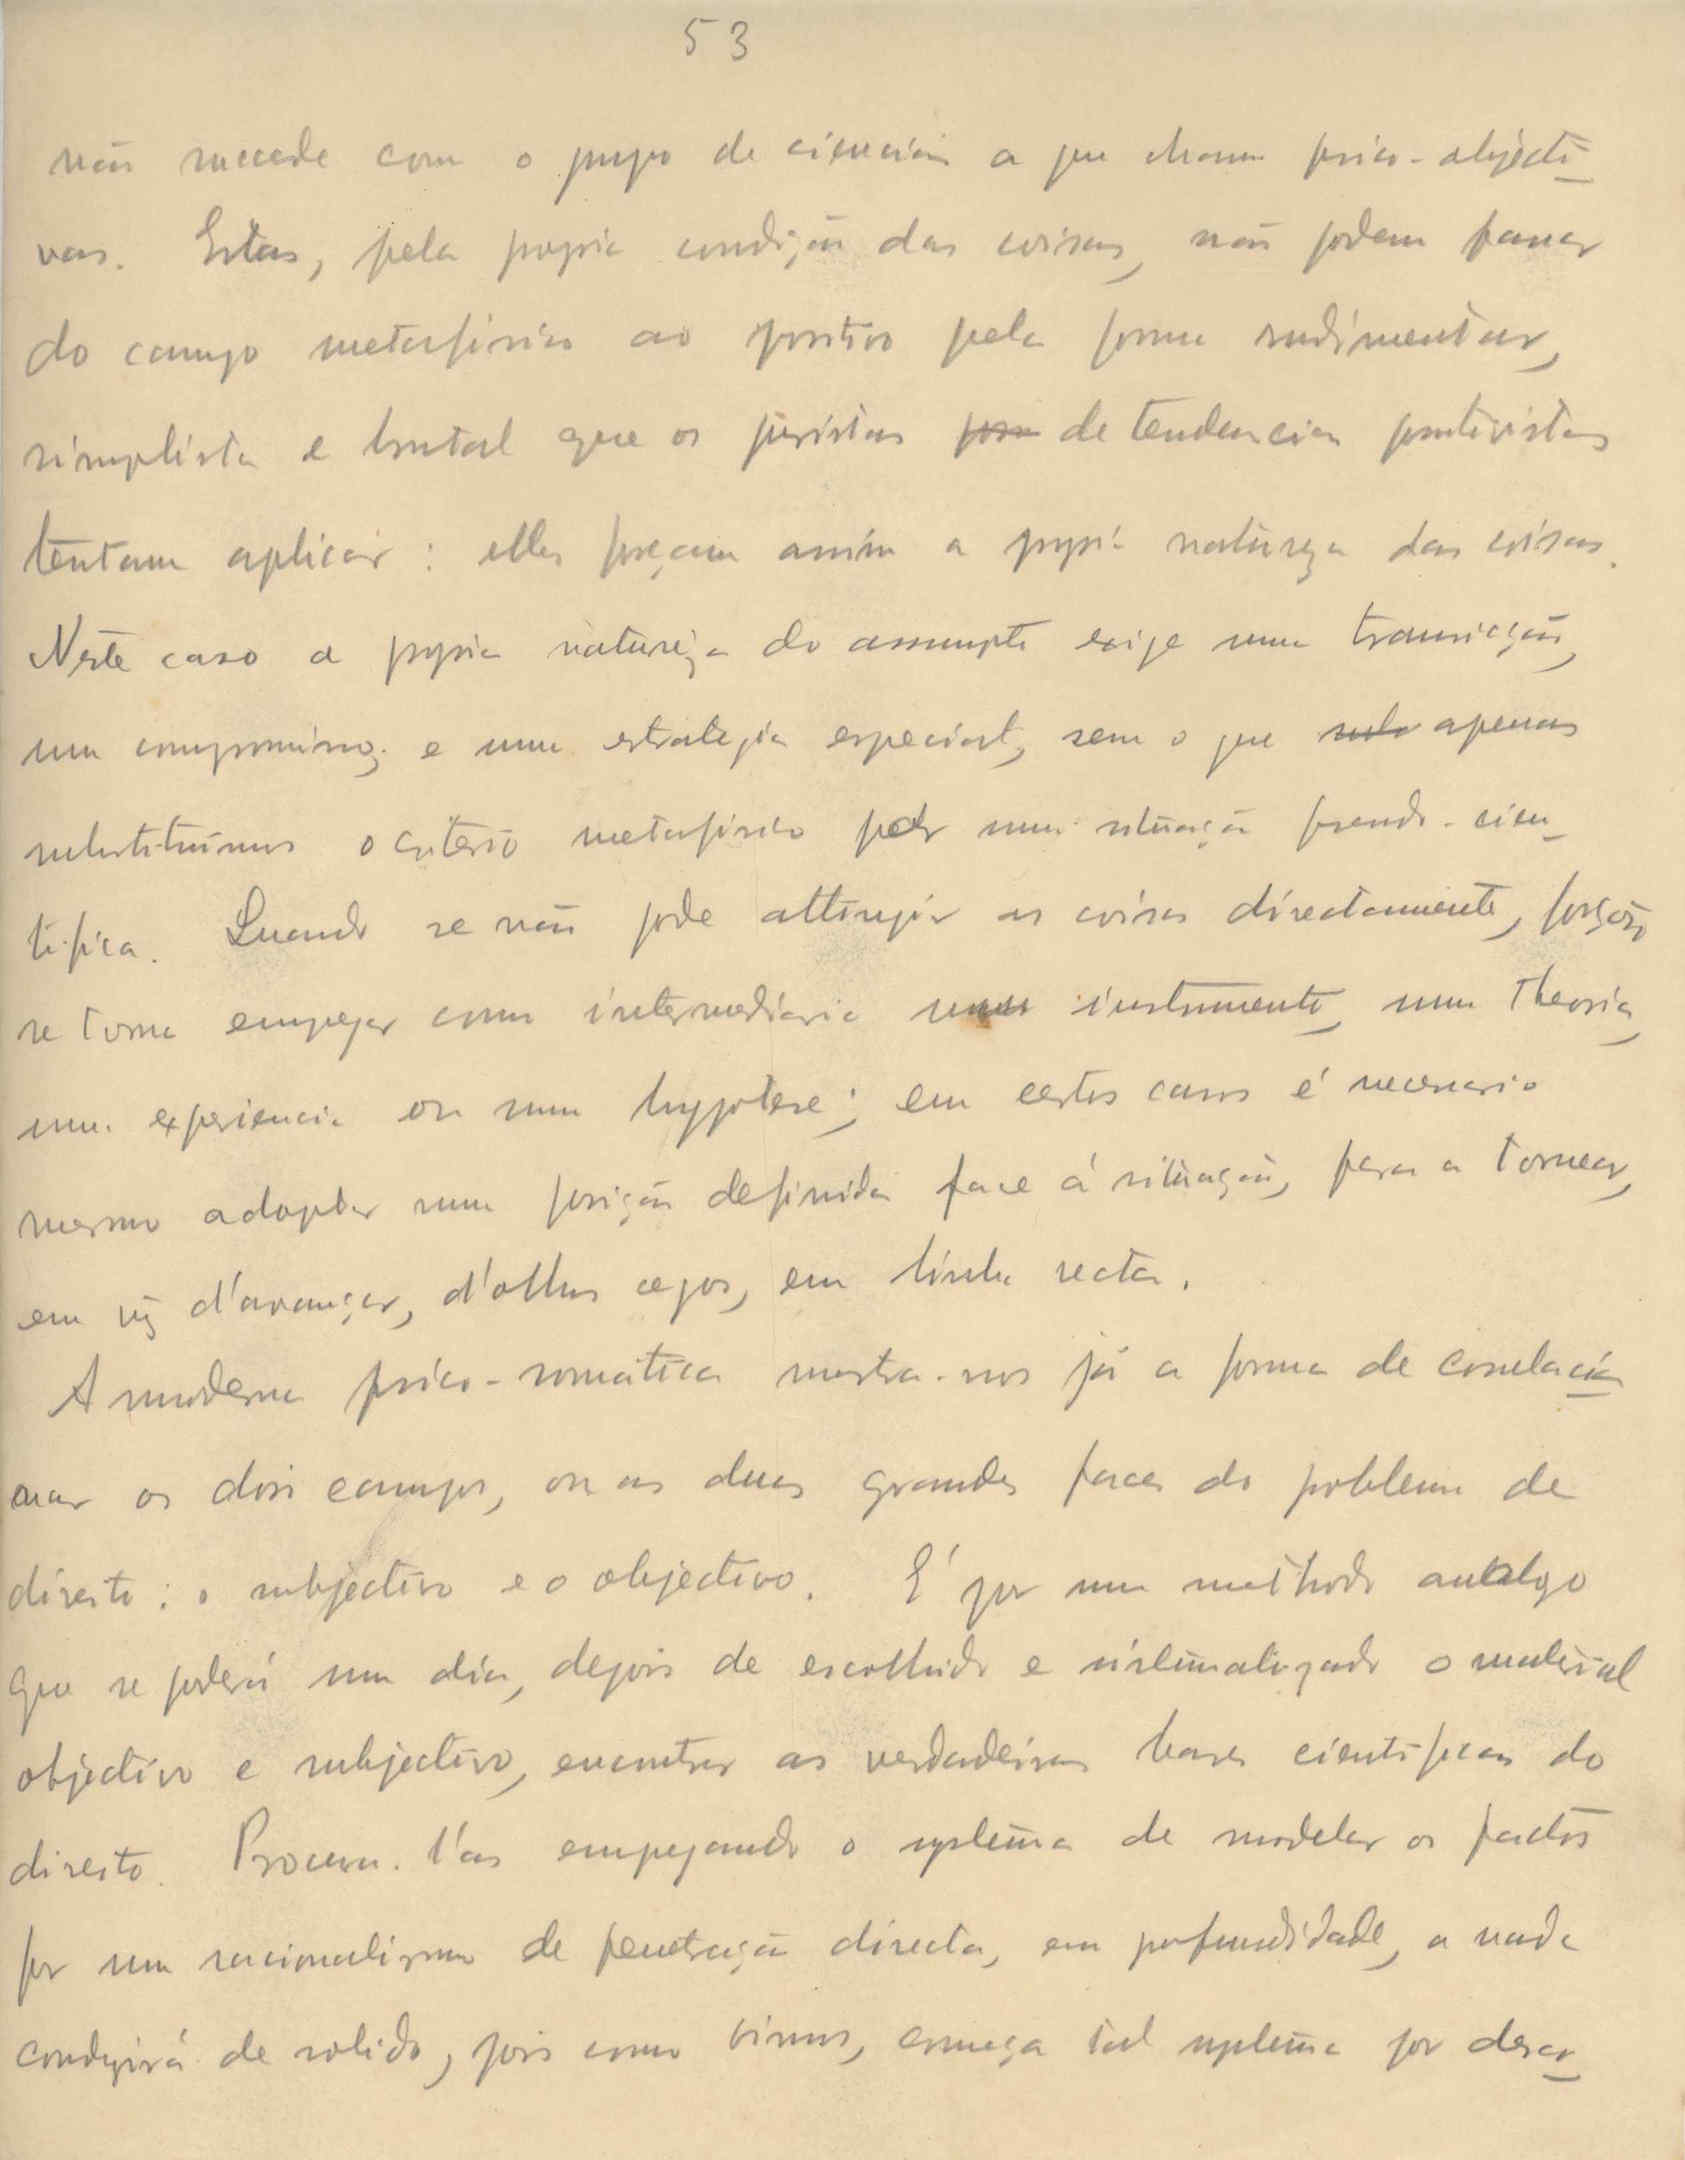 53
não succede com o grupo de ciencias a que chamam psico-objecti-
vas. Estas, pela propria condição das coisas, não podem passar
do campo metaphisico ao positivo pela forma rudimentar,
simplista e brutal que os juristas de tendencias positivistas
tentam aplicar : elles forçam assim a propria natureza das coisas.
Neste caso a propria natureza do assumpto exige uma transicção,
um compromisso, e uma estrategia especial, sem o que apenas
substituimos o criterio metafisico por uma situação pseudo-cien-
tifica. Quando se não pode attingir as coisas directamente, forçoso
se torna empregar como intermediario um instrumento, uma theoria,
uma experiencia ou uma hypotese; em certos casos é necessario
mesmo adoptar uma posição definida face á situação, para a tornear,
em vez d'avançar, d'olhos cegos, em linha recta.
A moderna psico-somática mostra-nos já a forma de correlacio-
nar os dois campos, ou as duas grandes faces do problema de
direito : o subjectivo e o objectivo. É por um methodo analogo
que se poderá um dia, depois de escolhido e sistematizado o material
objectivo e subjectivo, encontrar as verdadeiras bases cientificas do
direito. Procura-l'as empregando o systema de modelar os factos
por um racionalismo de penetração directa, em profundidade, a nada
conduzirá de solido, pois como vimos, começa tal systema por desar-